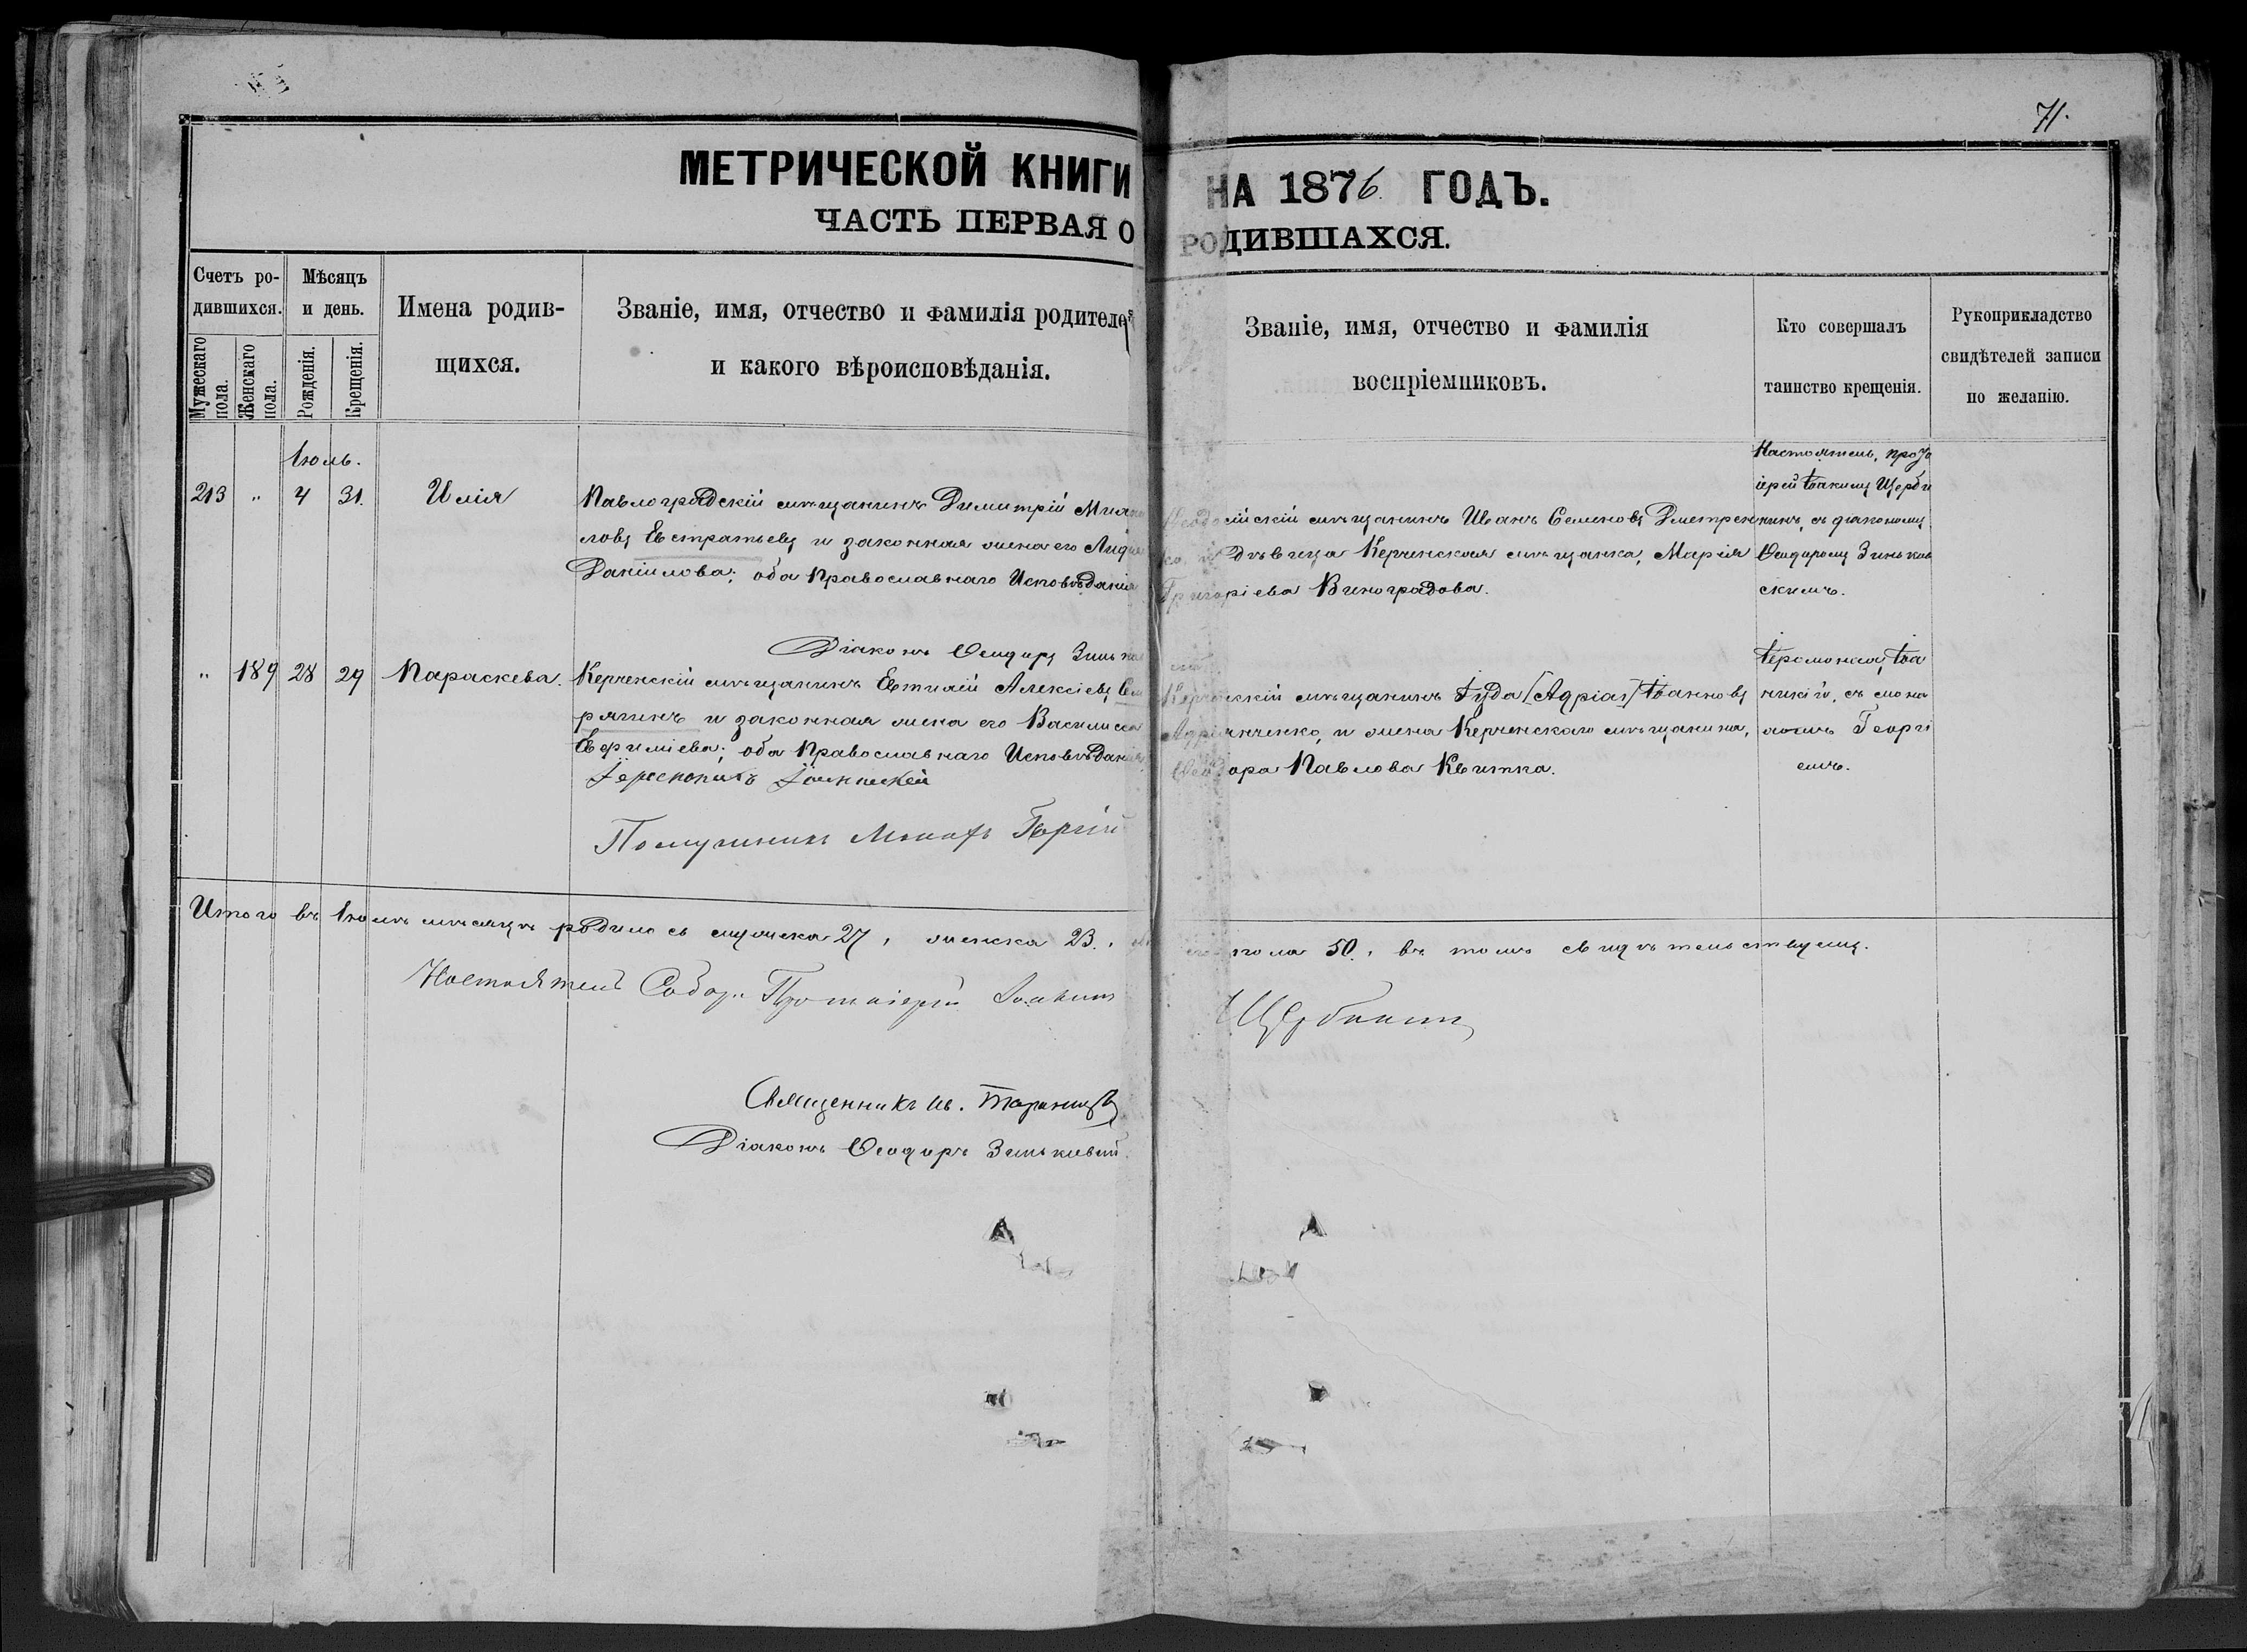 71.
МЕТРИЧЕСКОЙ КНИГИ НА 1876 ГОДЪ.
ЧАСТЬ ПЕРВАЯ О РОДИВШАХСЯ.
Счетъ ро-
дившихся.
Мужескаго пола.
Женскаго пола.
Мѣсяцъ
и день.
Рожденія.
Крещенія.
Имена родив-
щихся.
Званіе, имя, отчество и фамилія родителе
и какого вѣроисповѣданія.
Званіе, имя, отчество и фамилія
воспріемниковъ.
Кто совершалъ
таинство крещенія.
Рукоприкладство
свидѣтелей записи
по желанію.
Іюль.
213 " 4 31. Илія
Павлоградскій мѣщанинъ Димитрій
ловъ Евстратьевъ и законная жена его
Даніилова; оба Православнаго Исповѣданія
Ѳеодосійскій мѣщанинъ Иванъ Семеновъ Дметрен
ко, и дѣвица Керченская мѣщанка, Марія
Григоріева Виноградова.
Настоятель, прото
іерей Іоакимъ Щерби
нинъ, съ діакономъ
Ѳеодоромъ Зиньков
скимъ.
Діаконъ Ѳеодоръ
" 189 28 29 Параскева.
Керченскій мѣщанинъ Евтихій Алексіевъ
рягинъ и законная жена его Василиса
Евфиміева; оба Православнаго Исповѣданія
Керченскій мѣщанинъ Іуда [Адріан] Іоанновъ
Адріянченко, и жена Керченскаго мѣщанина,
Ѳеодора Павлова Квитка.
Іеромонахъ Іоа
нникій, съ мона
хомъ Георгі
емъ.
Іеромонахъ Іоанникій
Послушникъ Монахъ Георгій
Итого въ Іюлѣ мѣсяцѣ родилось мужеска 27, женска 23., пола 50., въ томъ свидѣтельствуемъ.
Настоятель Собор. Протоіерей Іоакимъ Щербининъ
Священникъ Ів.
Діаконъ Ѳеодоръ Зиньковскій.